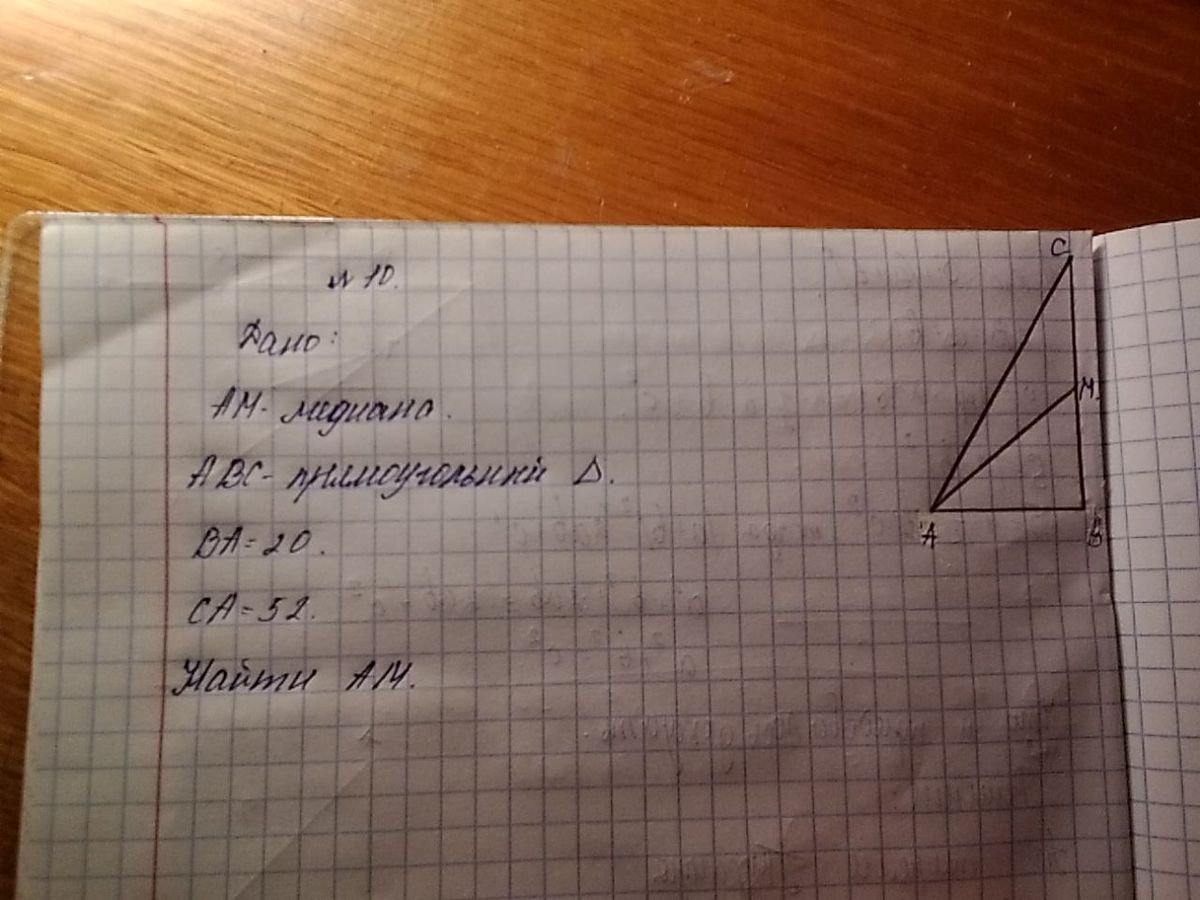 № 10.
Дано:
AM - медиана.
ABC - прямоугольний Δ.
BA = 20.
CA = 52.
Найти AM.
C
M
A
B